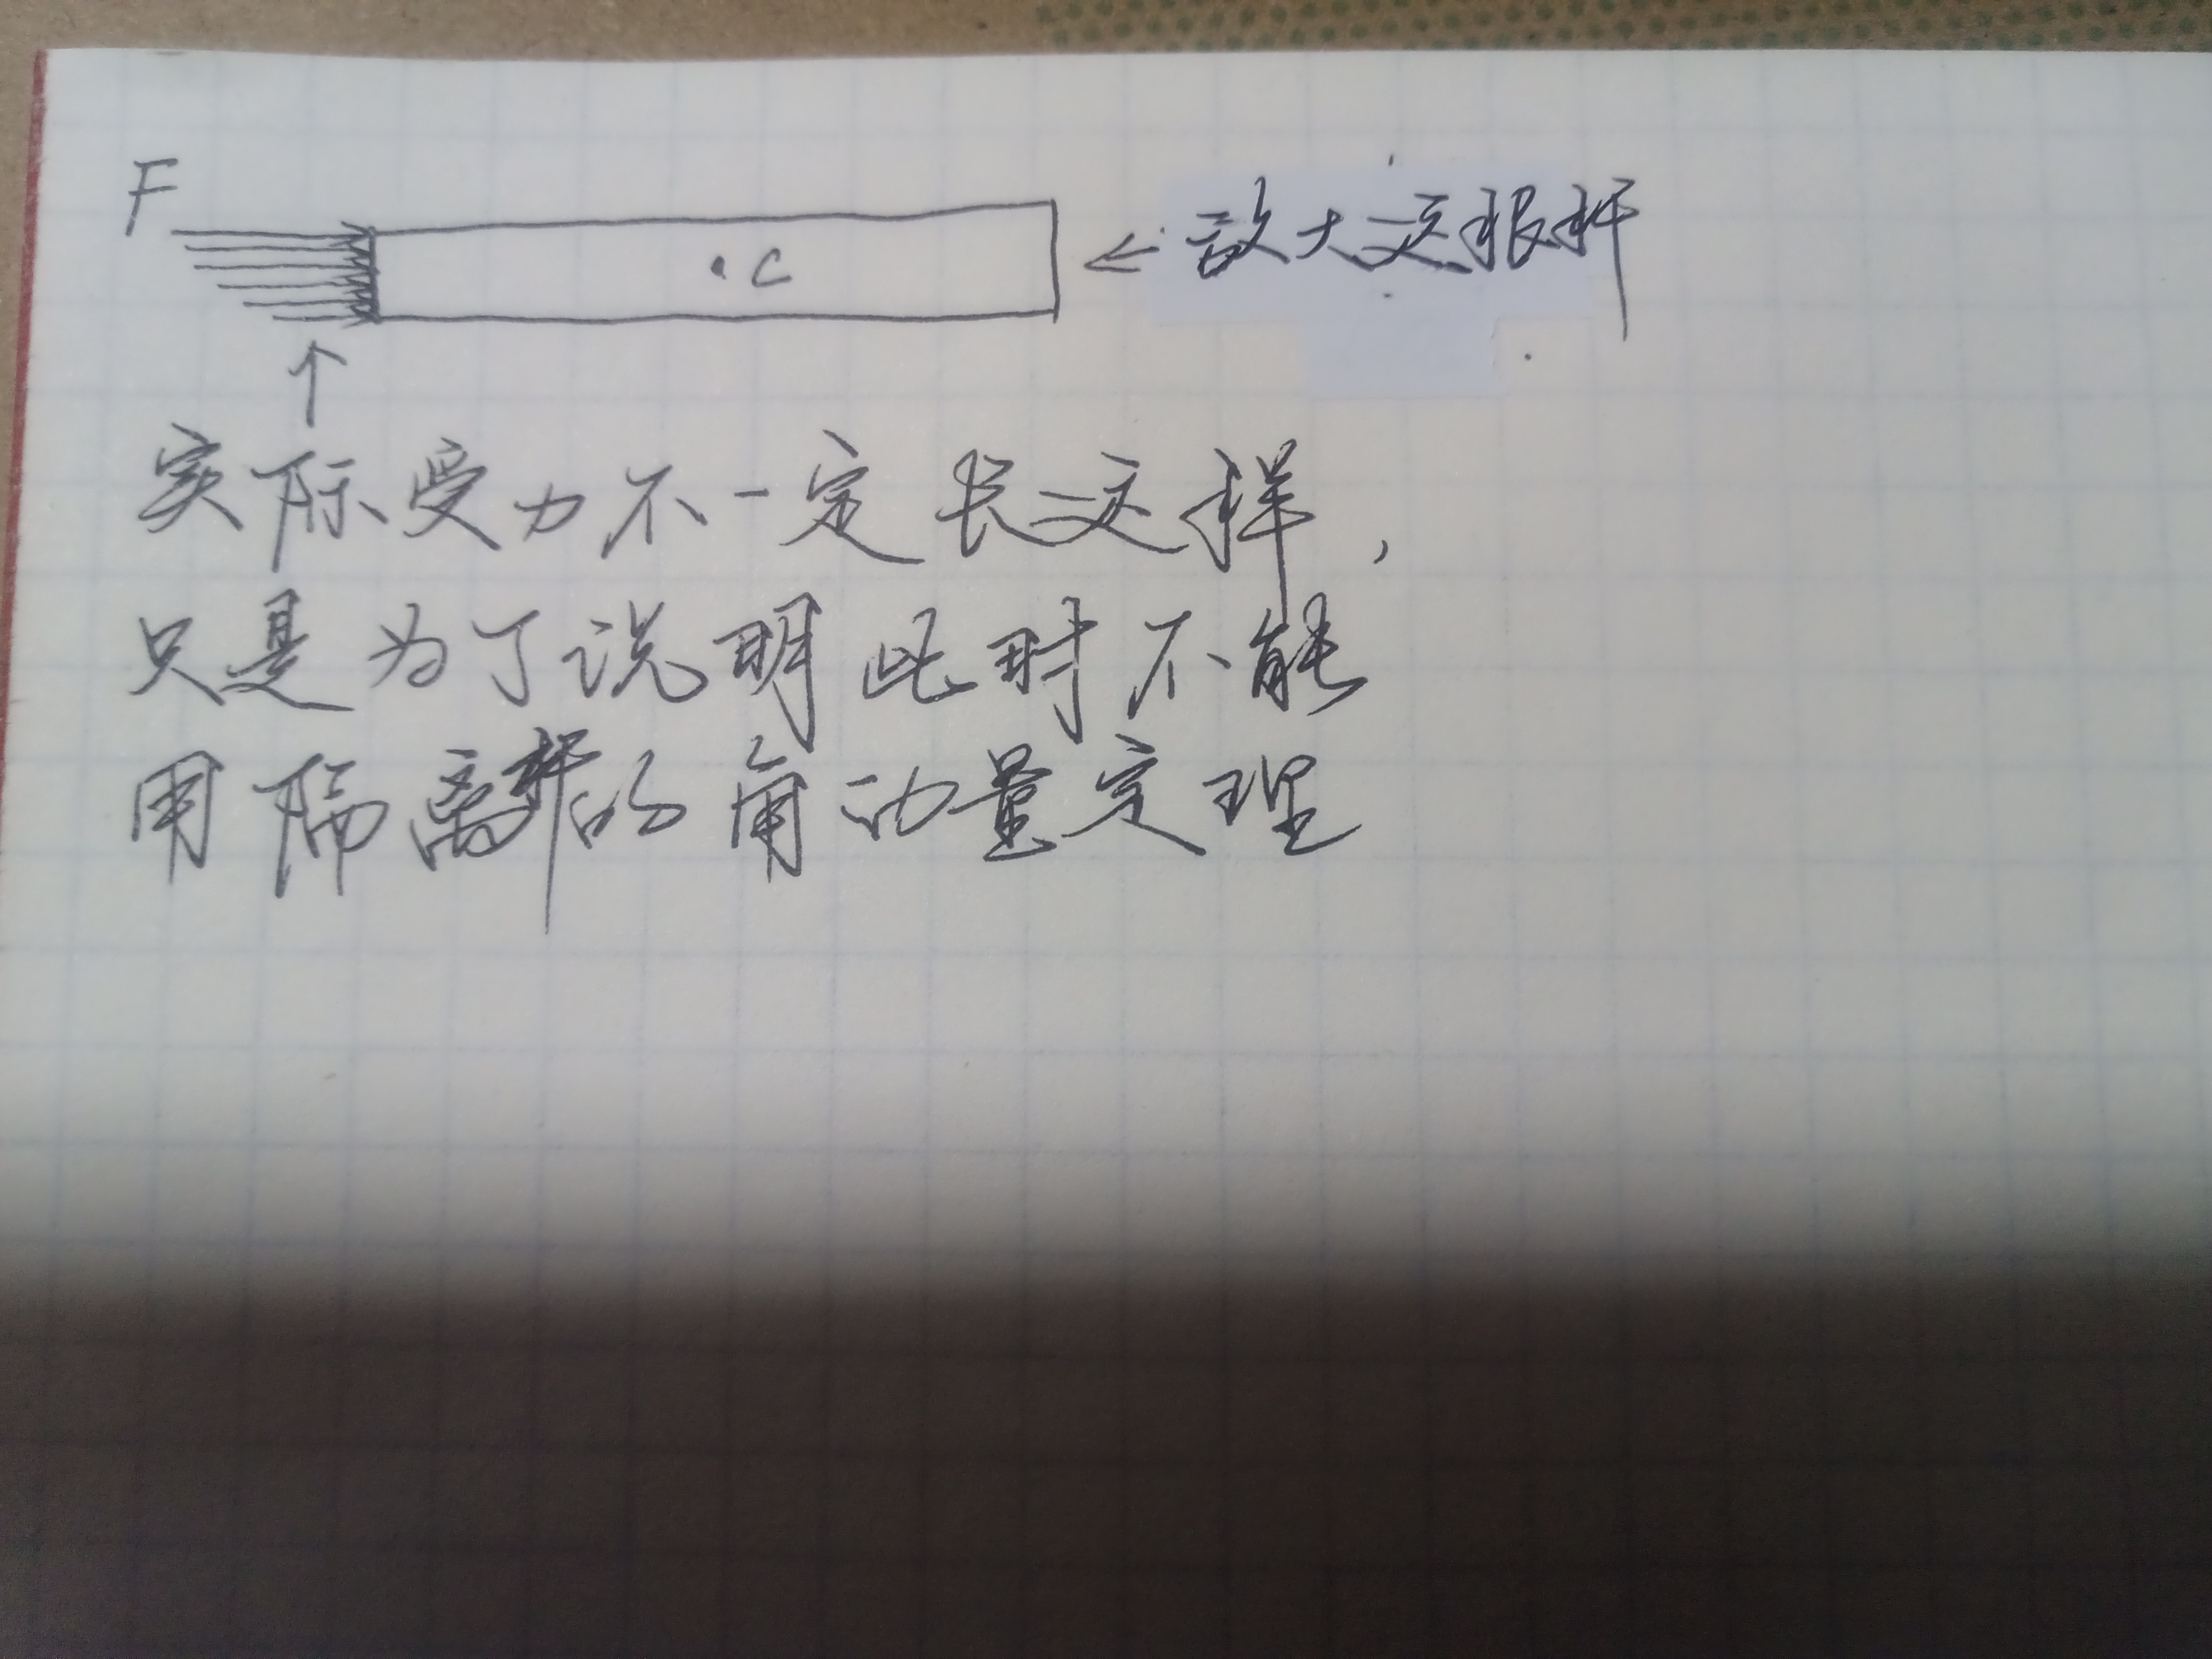 F
C
放大这根杆
实际受力不一定长这样,
只是为了说明此时不能
用隔离杆的角动量定理